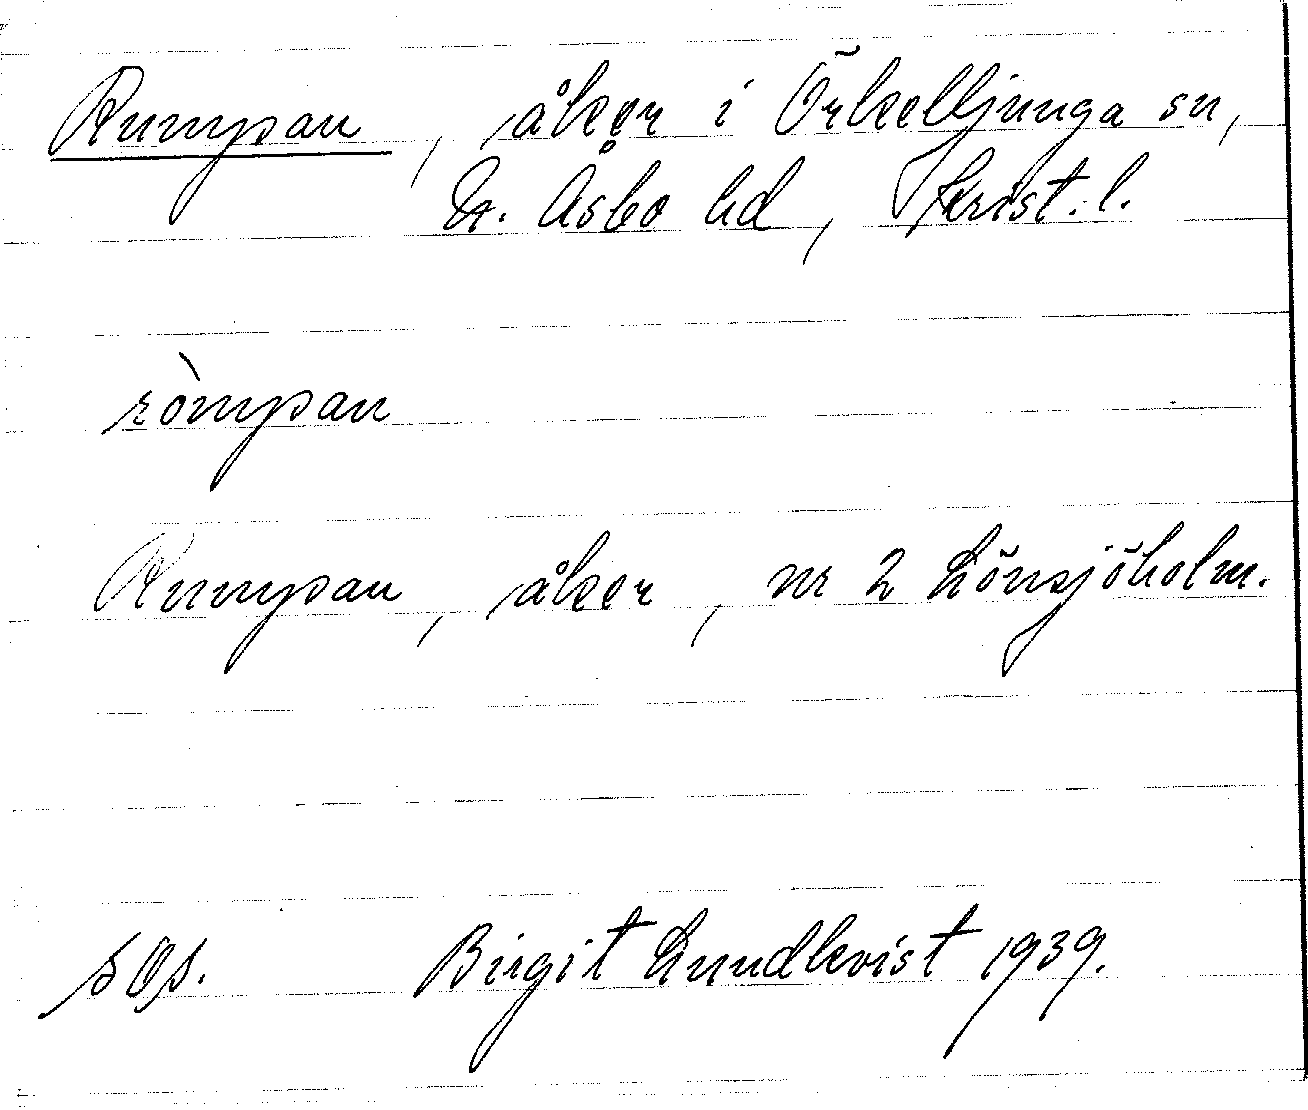 Rumpan, åker i Örkelljunga sn,
N. Åsbo hd, Krist. l.
ròmpan
Rumpan, åker, nr 2 Lönsjöholm.
sOs. Birgit Lundkvist 1939.